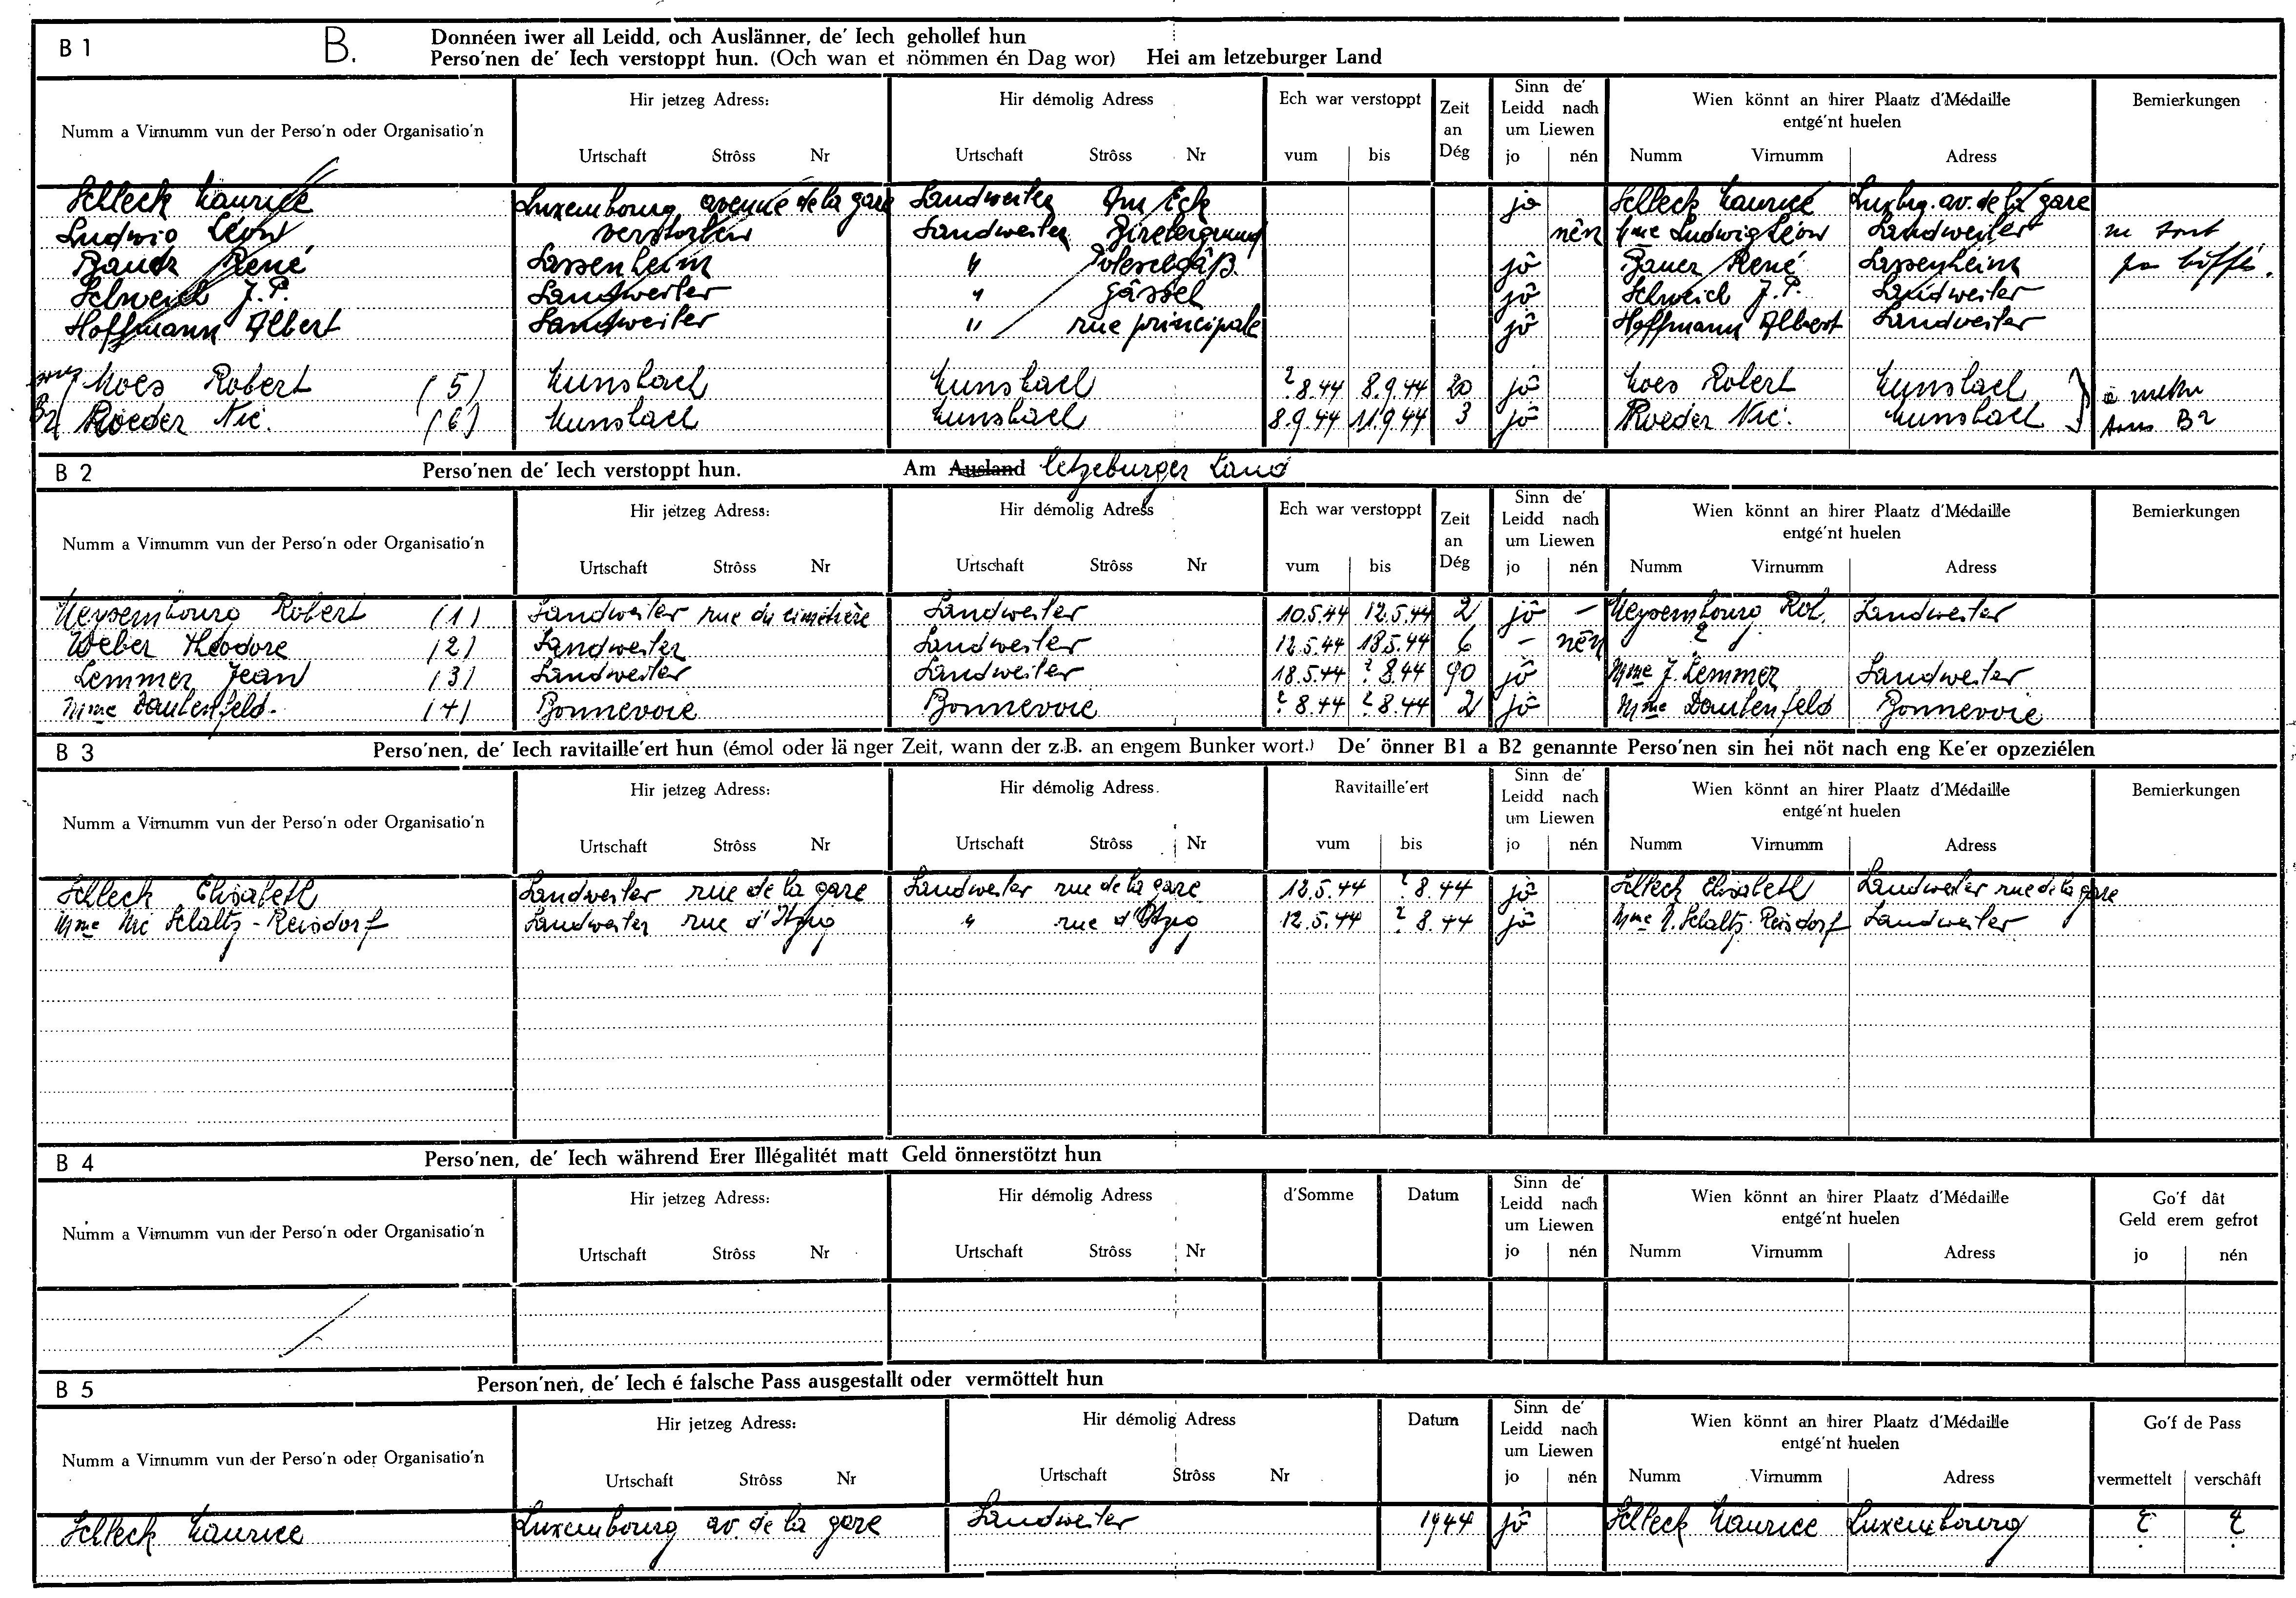 B 1 B. Donnéen iwer all Leidd, och Auslänner, de' Iech gehollef hun
Perso'nen de' Iech verstoppt hun. (Och wan et nömmen én Dag wor) Hei am letzeburger Land
Numm a Virnumm vun der Perso'n oder Organisatio'n
Hir jetzeg Adress:
Urtschaft Strôss Nr
Hir démolig Adress
Urtschaft Strôss Nr
Ech war verstoppt
vum bis
Zeit an Dég
Sinn de' Leidd nach um Liewen
jo nén
Wien könnt an hirer Plaatz d'Médaille entgé'nt huelen
Numm Virnumm Adress
Bemierkungen
Schleck Maurice Luxembourg avenue de la gare Sandweiler Am Eck jô Schleck Maurice Luxbg. av. de la gare
Ludwig Léon verstorben Sandweiler Birelergrund nên Mme Ludwig Léon Sandweiler ne sont
Bauer René Hassenheim " jô Bauer René pas biffés.
Schweich J.P. Sandweiler " Gässel jô Schweich J.P. Sandweiler
Hoffmann Albert Sandweiler " rue principale jô Hoffmann Albert Sandweiler
Moes Robert (5) Munsbach Munsbach ? 8.44 8.9.44 20 jô Moes Robert Munsbach à mettre
B2 Roeder Nic. (6) Munsbach Munsbach 8.9.44 11.9.44 3 jô Roeder Nic. Munsbach dans B2
B 2 Perso'nen de' Iech verstoppt hun. Am Ausland letzeburger Land
Numm a Virnumm vun der Perso'n oder Organisatio'n
Hir jetzeg Adress:
Urtschaft Strôss Nr
Hir démolig Adress
Urtschaft Strôss Nr
Ech war verstoppt
vum bis
Zeit an Dég
Sinn de' Leidd nach um Liewen
jo nén
Wien könnt an hirer Plaatz d'Médaille entgé'nt huelen
Numm Virnumm Adress
Bemierkungen
Neysembourg Robert (1) Sandweiler rue du cimetière Sandweiler 10.5.44 12.5.44 2 jô – Neysembourg Rob. Sandweiler
Weber Théodore (2) Sandweiler Sandweiler 12.5.44 18.5.44 6 – nên ?
Lemmer Jean (3) Sandweiler Sandweiler 18.5.44 ? 8.44 90 jô Mme J. Lemmer Sandweiler
Mme Daubenfeld. (4) Bonnevoie Bonnevoie ? 8.44 ? 8.44 2 jô Mme Daubenfeld Bonnevoie
B 3 Perso'nen, de' Iech ravitaille'ert hun (émol oder länger Zeit, wann der z.B. an engem Bunker wort.) De' önner B1 a B2 genannte Perso'nen sin hei nöt nach eng Ke'er opzeziélen
Numm a Virnumm vun der Perso'n oder Organisatio'n
Hir jetzeg Adress:
Urtschaft Strôss Nr
Hir démolig Adress.
Urtschaft Strôss Nr
Ravitaille'ert
vum bis
Sinn de' Leidd nach um Liewen
jo nén
Wien könnt an hirer Plaatz d'Médaille entgé'nt huelen
Numm Virnumm Adress
Bemierkungen
Schleck Elisabeth Sandweiler rue de la gare Sandweiler rue de la gare 12.5.44 ? 8.44 jô Schleck Elisabeth Sandweiler rue de la gare
Mme Nic Schaltz-Reisdorf Sandweiler rue d'Itzig " rue d'Itzig 12.5.44 ? 8.44 jô Mme N. Schaltz-Reisdorf Sandweiler
B 4 Perso'nen, de' Iech während Erer Illégalitét matt Geld önnerstötzt hun
Numm a Virnumm vun der Perso'n oder Organisatio'n
Hir jetzeg Adress:
Urtschaft Strôss Nr
Hir démolig Adress
Urtschaft Strôss Nr
d'Somme
Datum
Sinn de' Leidd nach um Liewen
jo nén
Wien könnt an hirer Plaatz d'Médaille entgé'nt huelen
Numm Virnumm Adress
Go'f dât Geld erem gefrot
jo nén
B 5 Person'nen, de' Iech é falsche Pass ausgestallt oder vermöttelt hun
Numm a Virnumm vun der Perso'n oder Organisatio'n
Hir jetzeg Adress:
Urtschaft Strôss Nr
Hir démolig Adress
Urtschaft Strôss Nr
Datum
Sinn de' Leidd nach um Liewen
jo nén
Wien könnt an hirer Plaatz d'Médaille entgé'nt huelen
Numm Virnumm Adress
Go'f de Pass
vermettelt verschâft
Schleck Maurice Luxembourg av. de la gare Sandweiler 1944 jô Schleck Maurice Luxembourg ? ?